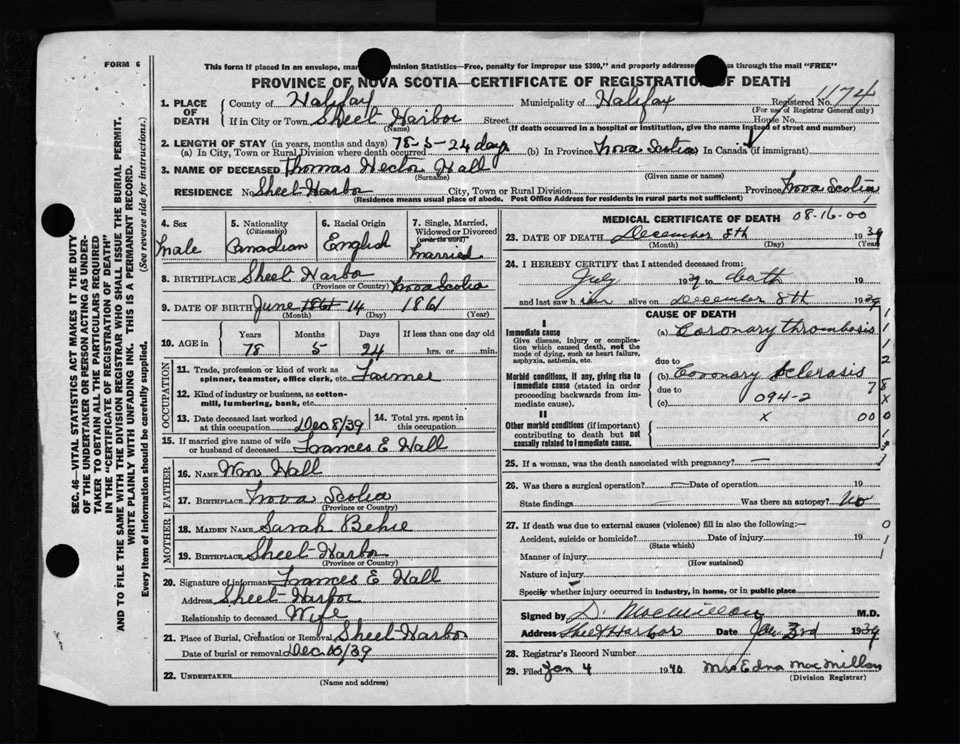 FORM 6
This form if placed in an envelope, mar minion Statistics—Free, penalty for improper use $300," and properly addresse ss through the mail "FREE"
PROVINCE OF NOVA SCOTIA—CERTIFICATE OF REGISTRATION OF DEATH
1174
1. PLACE OF DEATH
County of Halifax Municipality of Halifax Registered No.
(For use of Registrar General only)
If in City or Town Sheet Harbor Street House No.
(Name) (If death occurred in a hospital or institution, give the name instead of street and number)
2. LENGTH OF STAY (in years, months and days) 78-5-24 days
(a) In City, Town or Rural Division where death occurred (b) In Province Nova Scotia In Canada (if immigrant)
3. NAME OF DECEASED Thomas Hector Hall
(Surname) (Given name or names)
RESIDENCE No. Sheet Harbor City, Town or Rural Division Province Nova Scotia
(Residence means usual place of abode. Post Office Address for residents in rural parts not sufficient)
4. Sex
Male
5. Nationality
(Citizenship)
Canadian
6. Racial Origin
English
7. Single, Married, Widowed or Divorced
(write the word)
Married
8. BIRTHPLACE Sheet Harbor Nova Scotia
(Province or Country)
9. DATE OF BIRTH June 1861 14 1861
(Month) (Day) (Year)
10. AGE in
Years Months Days If less than one day old
78 5 24 hrs. or min.
OCCUPATION
11. Trade, profession or kind of work as spinner, teamster, office clerk, etc. Farmer
12. Kind of industry or business, as cotton-mill, lumbering, bank, etc.
13. Date deceased last worked at this occupation Dec 8/39
14. Total yrs. spent in this occupation
15. If married give name of wife or husband of deceased Frances E Hall
FATHER
16. NAME Wm Hall
17. BIRTHPLACE Nova Scotia
(Province or Country)
MOTHER
18. MAIDEN NAME Sarah Behie
19. BIRTHPLACE Sheet Harbor
(Province or Country)
20. Signature of informant Frances E Hall
Address Sheet Harbor
Relationship to deceased Wife
21. Place of Burial, Cremation or Removal Sheet Harbor
Date of burial or removal Dec 10/39
22. UNDERTAKER
(Name and address)
MEDICAL CERTIFICATE OF DEATH 08-16-00
23. DATE OF DEATH December 8th 1939
(Month) (Day) (Year)
24. I HEREBY CERTIFY that I attended deceased from:
July 1939 to death 19
and last saw him alive on December 8th 1939
CAUSE OF DEATH
I
Immediate cause
Give disease, injury or complication which caused death, not the mode of dying, such as heart failure, asphyxia, asthenia, etc.
(a) Coronary thrombosis
due to
Morbid conditions, if any, giving rise to immediate cause (stated in order proceeding backwards from immediate cause).
(b) Coronary Sclerosis
due to 78
(c) 094-2
II
Other morbid conditions (if important) contributing to death but not causally related to immediate cause.
x 000
25. If a woman, was the death associated with pregnancy? —
26. Was there a surgical operation? — Date of operation 19
State findings Was there an autopsy? No
27. If death was due to external causes (violence) fill in also the following:—
Accident, suicide or homicide? Date of injury 19
(State which)
Manner of injury
(How sustained)
Nature of injury
Specify whether injury occurred in industry, in home, or in public place
Signed by D. MacMillan M.D.
Address Sheet Harbor Date Jan 3rd 1939
28. Registrar's Record Number
29. Filed Jan 4 1940 Mrs Edna MacMillan
(Division Registrar)
SEC. 46—VITAL STATISTICS ACT MAKES IT THE DUTY
OF THE UNDERTAKER OR PERSON ACTING AS UNDER-
TAKER TO OBTAIN ALL THE PARTICULARS REQUIRED
IN THE "CERTIFICATE OF REGISTRATION OF DEATH"
AND TO FILE THE SAME WITH THE DIVISION REGISTRAR WHO SHALL ISSUE THE BURIAL PERMIT.
WRITE PLAINLY WITH UNFADING INK. THIS IS A PERMANENT RECORD.
Every item of information should be carefully supplied. (See reverse side for instructions.)